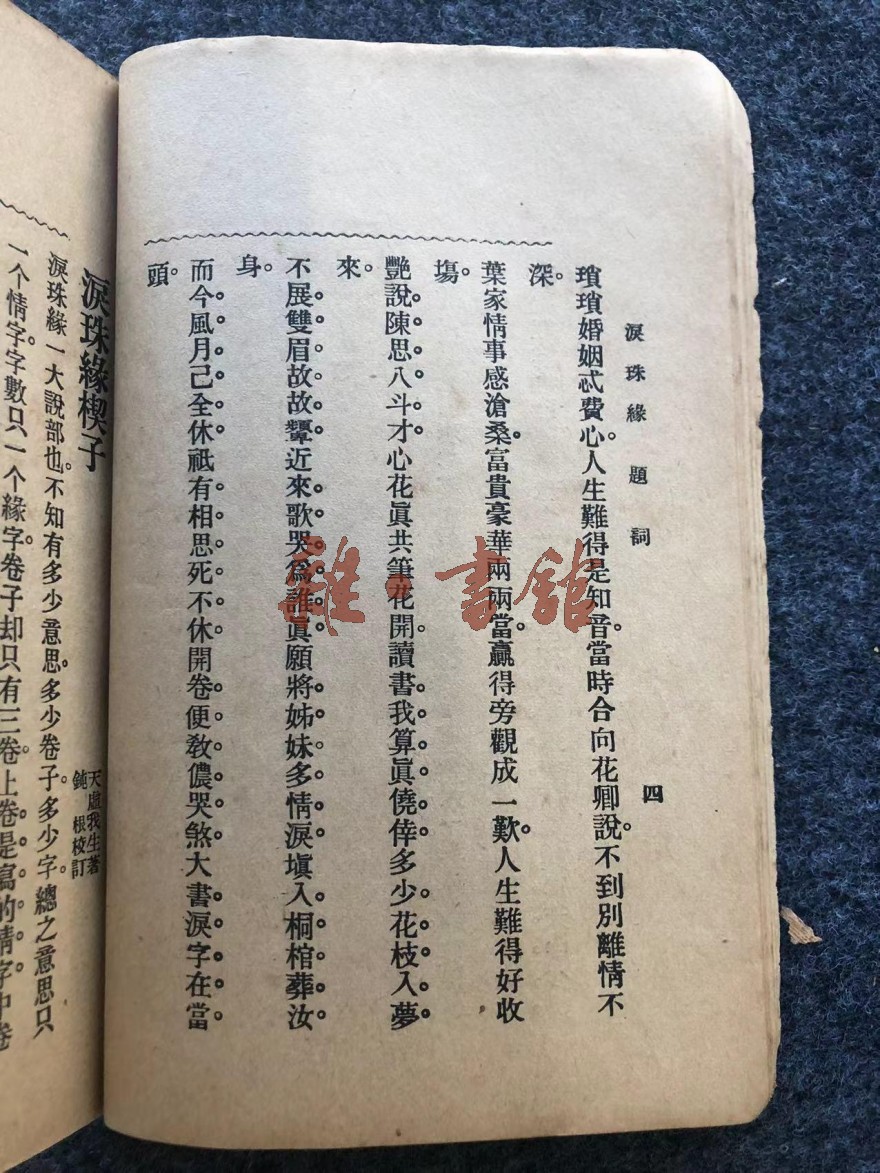 淚珠緣 題詞 四
瑣瑣婚姻忒費心。人生難得是知音。當時合向花卿說。不到別離情不
深。
葉家情事感滄桑。富貴豪華兩兩當。贏得旁觀成一歎。人生難得好收
塲。
艷說陳思八斗才。心花眞共筆花開。讀書我算眞僥倖。多少花枝入夢
來。
不展雙眉故故顰。近來歌哭爲誰眞。願將姊妹多情淚。塡入桐棺葬汝
身。
而今風月己全休。祗有相思死不休。開卷便敎儂哭煞。大書淚字在當
頭。
淚珠緣楔子
天虛我生著
鈍根校訂
淚珠緣一大說部也。不知有多少意思。多少卷子。多少字。總之意思只
一个情字。字數只一个緣字。卷子却只有三卷。上卷是寫的情字。中卷
雜·書館